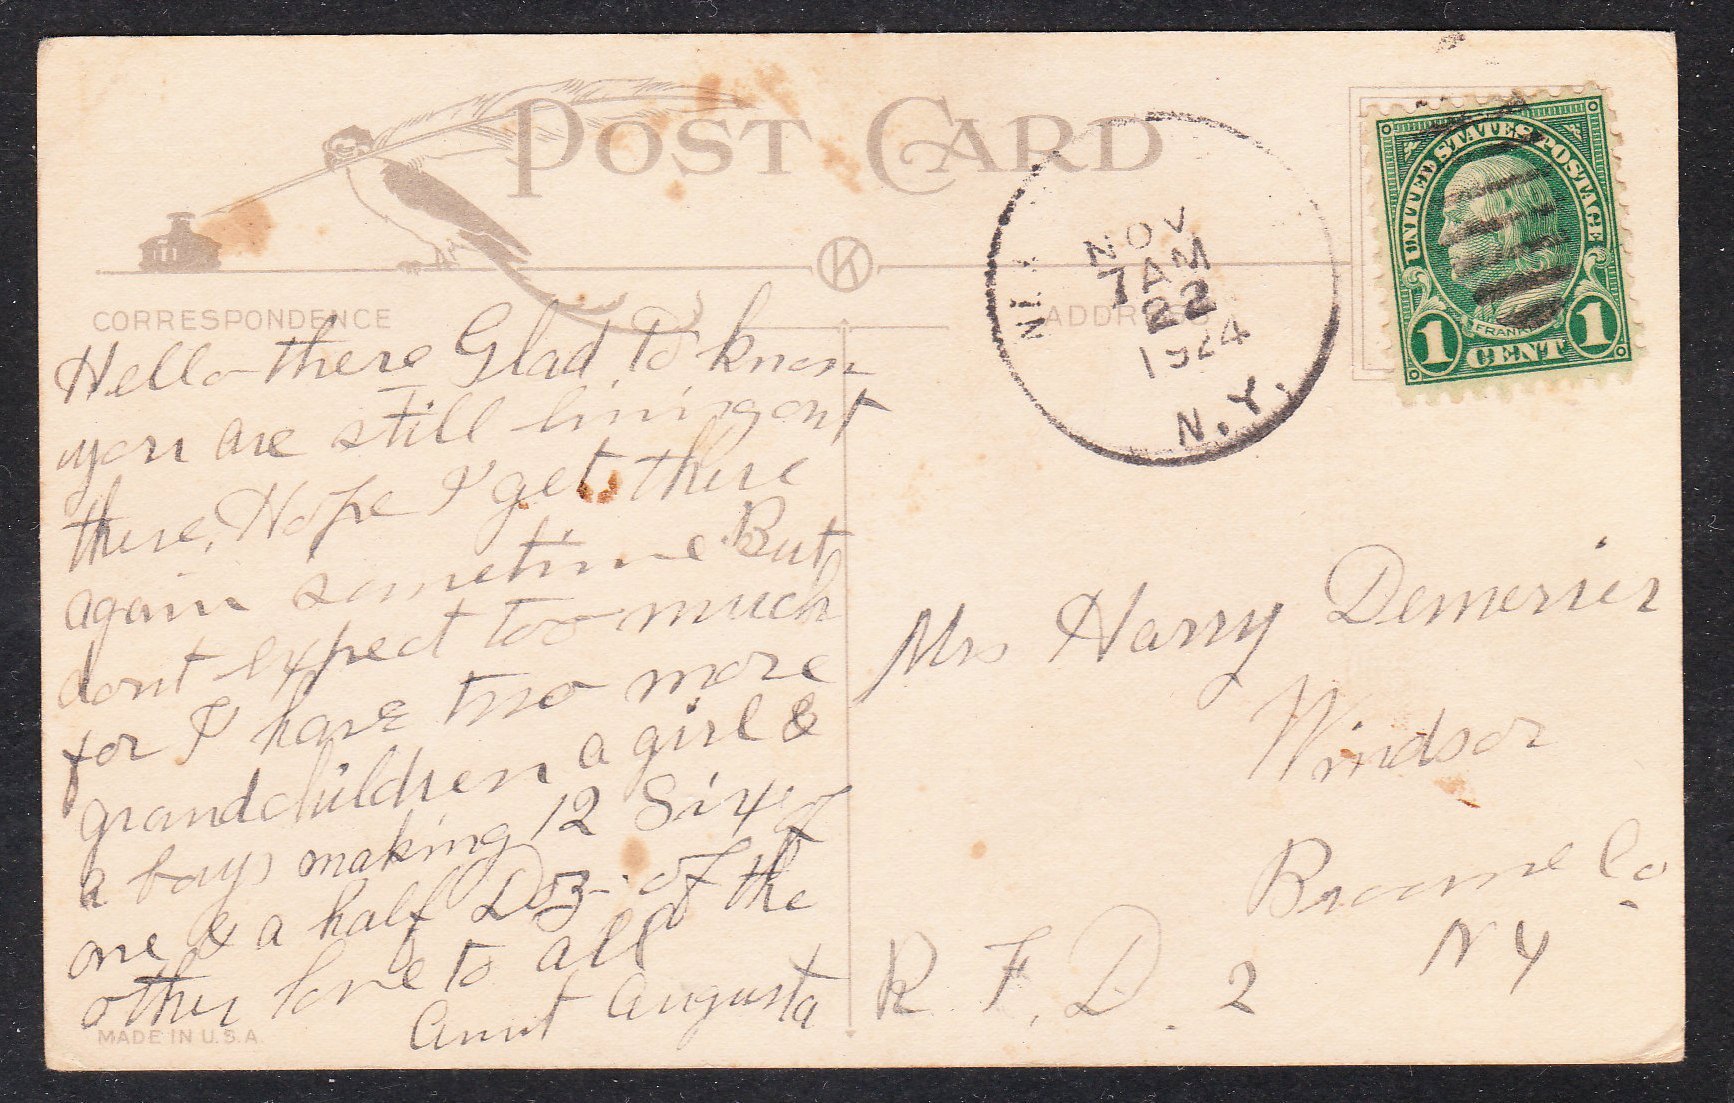 POST CARD
CORRESPONDENCE
ADDRESS
NOV
7 AM
22
1924
N.Y.
UNITED STATES POSTAGE
FRANKLIN
1 CENT 1
K
Hello there Glad to know
you are still living out
there, Hope I get there
again sometime But
dont expect too much
for I have two more
grandchildren a girl &
a boys making 12 Six of
one & a half Doz. of the
other love to all
Aunt Augusta
Mrs Harry Demerier
Windsor
Broome Co
N Y
R. F. D. 2
MADE IN U.S.A.